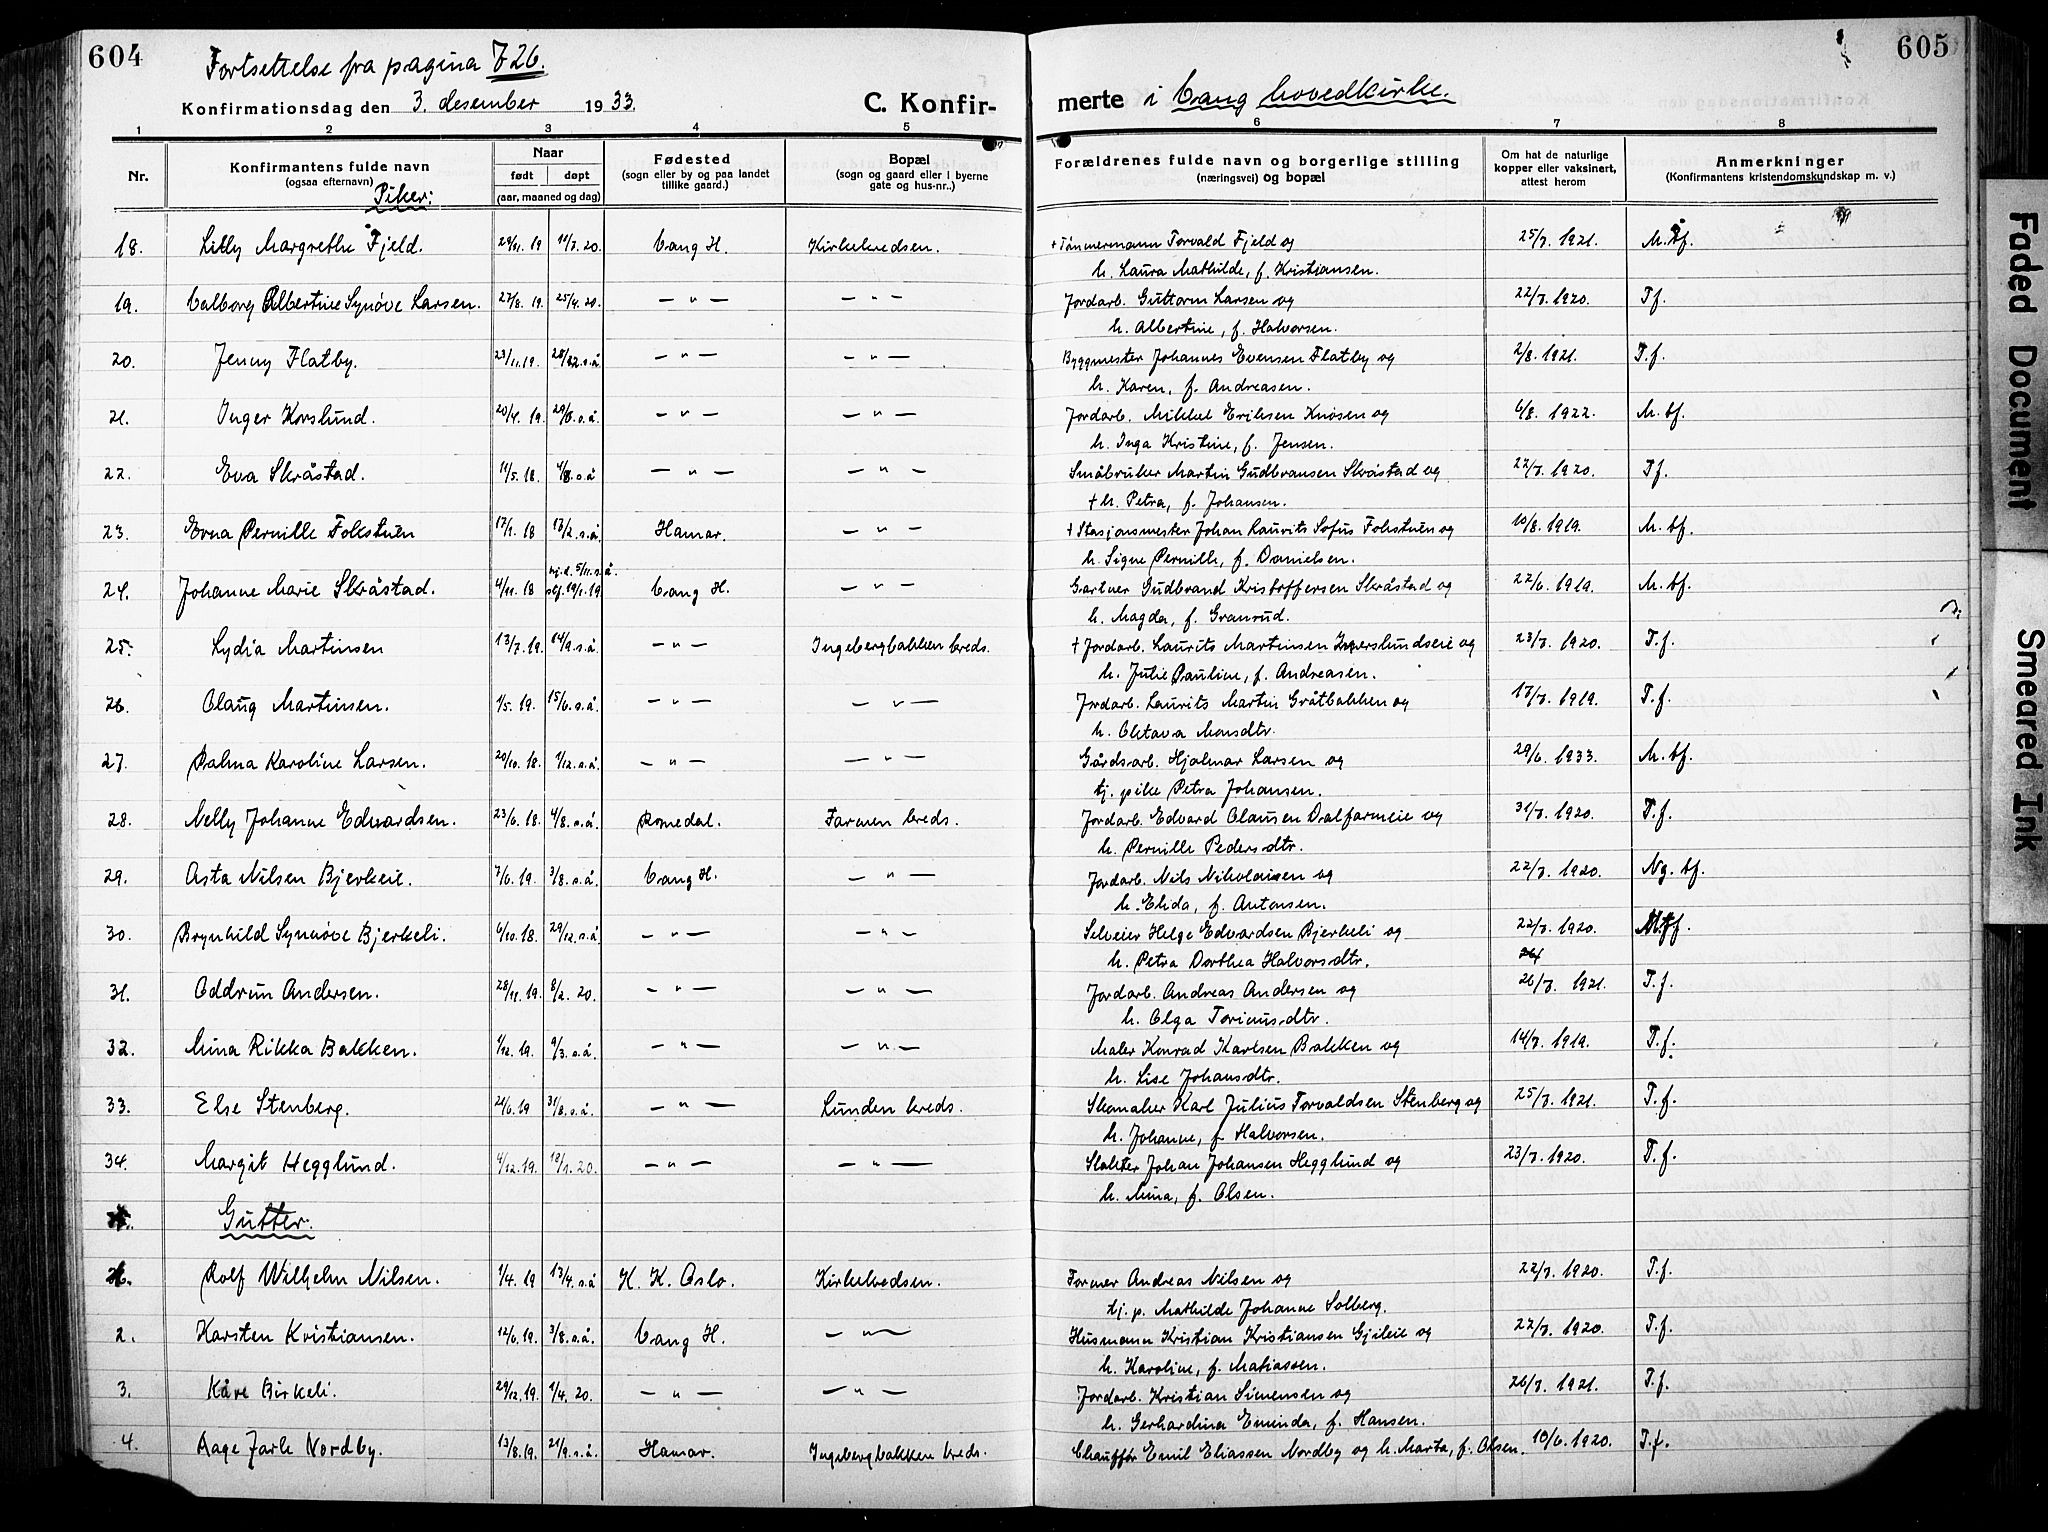 604
Fortsettelse fra pagina 726.
Konfirmationsdag den 3. desember 1933.
C. Konfir-
1 2 3 4 5
Nr.
Konfirmantens fulde navn
(ogsaa efternavn)
Piker:
Naar
født døpt
(aar, maaned og dag)
Fødested
(sogn eller by og paa landet
tillike gaard.)
Bopæl
(sogn og gaard eller i byerne
gate og hus-nr.)
18. Lilly Margrethe Fjeld. 29/11. 19 11/7. 20. Vang H. Kirkekredsen.
19. Valborg Albertine Synöve Larsen. 27/8. 19. 25/4. 20. — " — — " —
20. Jenny Flatby. 23/11. 19. 28/12. s.å — " — — " —
21. Inger Korslund. 20/4. 19. 29/6. s.å. — " — — " —
22. Eva Skråstad. 11/5. 18. s.å — " — — " —
23. Erna Pernille Folkstuen 17/1. 18 13/2. s.å. Hamar. — " —
24. Johanne Marie Skråstad. 4/11. 18 hj.d. 5/11. s.å. stf. 19/1. 19 Vang H. — " —
25. Lydia Martinsen 13/7. 19. 14/9. s.å. — " — Ingebergbakken kreds.
26. Olaug Martinsen. 1/5. 19. 15/6. s.å. — " — — " —
27. Palma Karoline Larsen. 20/10. 18. 1/12. s.å. — " — — " —
28. Nelly Johanne Edvardsen. 23/6. 18. 4/8. s.å. Romedal. Farmen kreds.
29. Asta Nilsen Bjerkeie. 7/6. 19. 3/8. s.å. Vang H. — " —
30. Brynhild Synnöve Bjerkeli. 6/10. 18. 29/12. s.å. — " — — " —
31. Oddrun Andersen. 28/11. 19. 8/2. 20. — " — — " —
32. Mina Rikka Bakken. 19. 9/3. s.å. — " — — " —
33. Else Stenberg. 24/6. 19 31/8. s.å. — " — Lunden kreds.
34. Margit Hegglund. 4/12. 19. 18/1. 20. — " — — " —
Gutter.
Rolf Wilhelm Nilsen. 1/4. 19 13/4. s.å K. K. Oslo. Kirkekredsen.
2. Karsten Kristiansen. 12/6. 19. 3/8. s.å. Vang H. — " —
3. Kåre Birkeli. 29/12. 19. 1/4. 20. — " — — " —
4. Aage Jarle Nordby. 13/8. 19. 21/9. s.å. Hamar. Ingebergbakken kreds.
605
merte i Vang hovedkirke.
6 7 8
Forældrenes fulde navn og borgerlige stilling
(næringsvei) og bopæl
Om hat de naturlige
kopper eller vaksinert,
attest herom
Anmerkninger
(Konfirmantens kristendomskundskap m. v.)
+ Tömmermann Torvald Fjeld og 25/7. 1921. M. tf.
h. Laura Mathilde, f. Kristiansen.
Jordarb. Guttorm Larsen og 22/7. 1920. Tf.
h. Albertine, f. Halvorsen.
Byggmester Johannes Evensen Flatby og 2/8. 1921. T.f.
h. Karen, f. Andreasen.
Jordarb. Mikkel Eriksen Knosen og 4/8. 1922. M. tf.
h. Inga Kristine, f. Jensen.
Småbruker Martin Gudbransen Skråstad og 22/7. 1920. Tf.
+ h. Petra, f. Johansen.
+ Stasjonsmester Johan Laurits Sofus Folkstuen og 10/8. 1919. M. tf.
h. Signe Pernille, f. Danielsen.
Gartner Gudbrand Kristoffersen Skråstad og 22/6. 1919. M. tf.
h. Magda, f. Granrud.
+ Jordarb. Laurits Martinsen Ingerslundseie og 23/7. 1920. T.f.
h. Julie Pauline, f. Andreasen.
Jordarb. Laurits Martin Gråtbakken og 17/7. 1919. T.f.
h. Oktava Monsdtr.
Gårdsarb. Hjalmar Larsen og 29/6. 1933. M. tf.
tj. pike Petra Johansen.
Jordarb. Edvard Olausen Dalfarmeie og 31/7. 1920. T.f.
h. Pernille Pedersdtr.
Jordarb. Nils Nikolaisen og 22/7. 1920. Ng. tf.
h. Elida, f. Antonsen.
Selveier Helge Edvardsen Bjerkeli og 22/7. 1920.
h. Petra Dorthea Halvorsdtr.
Jordarb. Andreas Andersen og 26/7. 1921. T.f.
h. Olga Toriusdtr.
Maler Konrad Karlsen Bakken og 14/7. 1919. T.f.
h. Lise Johansdtr.
Skomaker Karl Julius Torvaldsen Stenberg og 25/7. 1921. T.f.
h. Johanne, f. Halvorsen.
Slakter Johan Johansen Hegglund og 23/7. 1920. T.f.
h. Mina, f. Olsen.
Former Andreas Nilsen og 22/7. 1920. T.f.
tj. p. Mathilde Johanne Solberg.
Husmann Kristian Kristiansen Gjileie og 22/7. 1920. T.f.
h. Karoline, f. Matiassen.
Jordarb. Kristian Simensen og 26/7. 1921. T.f.
h. Gerhardina Eminda, f. Hansen.
Chauffør Emil Eliassen Nordby og h. Marta, f. Olsen. 10/6. 1920. T.f.
Faded Document
Smeared Ink